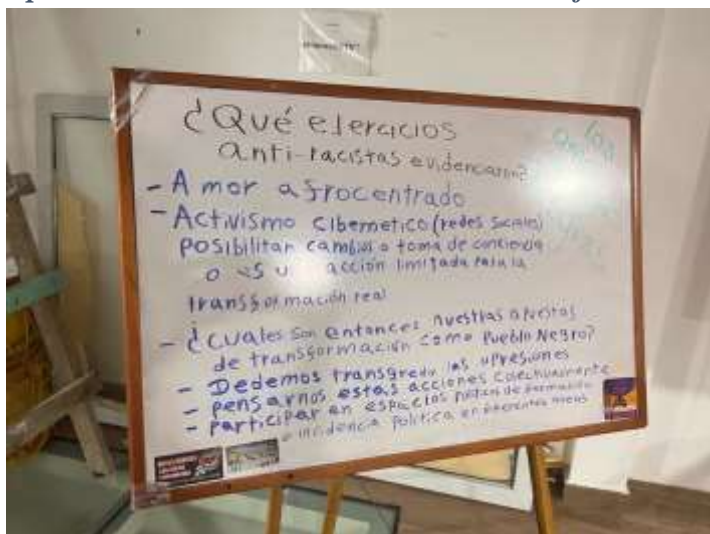 ¿Qué ejercicios
anti-racistas evidenciaron?
- Amor afrocentrado
- Activismo cibernetico (redes sociales)
posibilitar cambios o toma de conciencia
o es u acción limitada para la
transformación real
- ¿cuales son entonces nuestras apuestas
de transformación como Pueblo Negro?
- Dedemos transgredir las opresiones
- pensarnos estas acciones colectivamente
- participar en espacios de formación
e incidencia política en diferentes